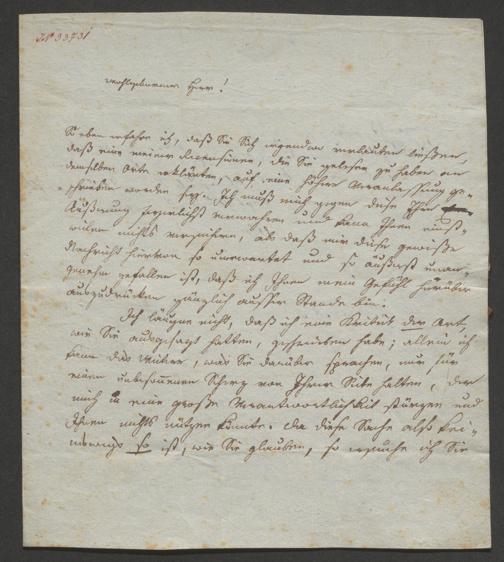 N 33731
Wohlgeborener Herr!
So eben erfahre ich, daß Sie sich irgendwo verlauten ließen,
daß eine meiner Recensionen, die Sie gelesen zu haben an
demselben Orte erklärten, auf eine höhere Veranlassung ge-
schrieben worden sey. Ich muß mich gegen diese Ihre
Äußerung feyerlichst verwahren und kann Ihnen einst-
weilen nichts versichern, als daß mir diese gewisse
Nachricht hiervon so unerwartet und so äußerst unan-
genehm gefallen ist, daß ich Ihnen mein Gefühl hierüber
auszudrücken gänzlich ausser Stande bin.
Ich läugne nicht, daß ich eine Kritik der Art,
wie Sie ausgesagt hatten, geschrieben habe; allein ich
kann das Weitere, was Sie darüber sprachen, nur für
einen unbesonnenen Scherz von Ihrer Seite halten, der
mich in eine große Verantwortlichkeit stürzen und
Ihnen nichts nützen könnte. Da diese Sache also kei-
neswegs so ist, wie Sie glauben, so ersuche ich Sie